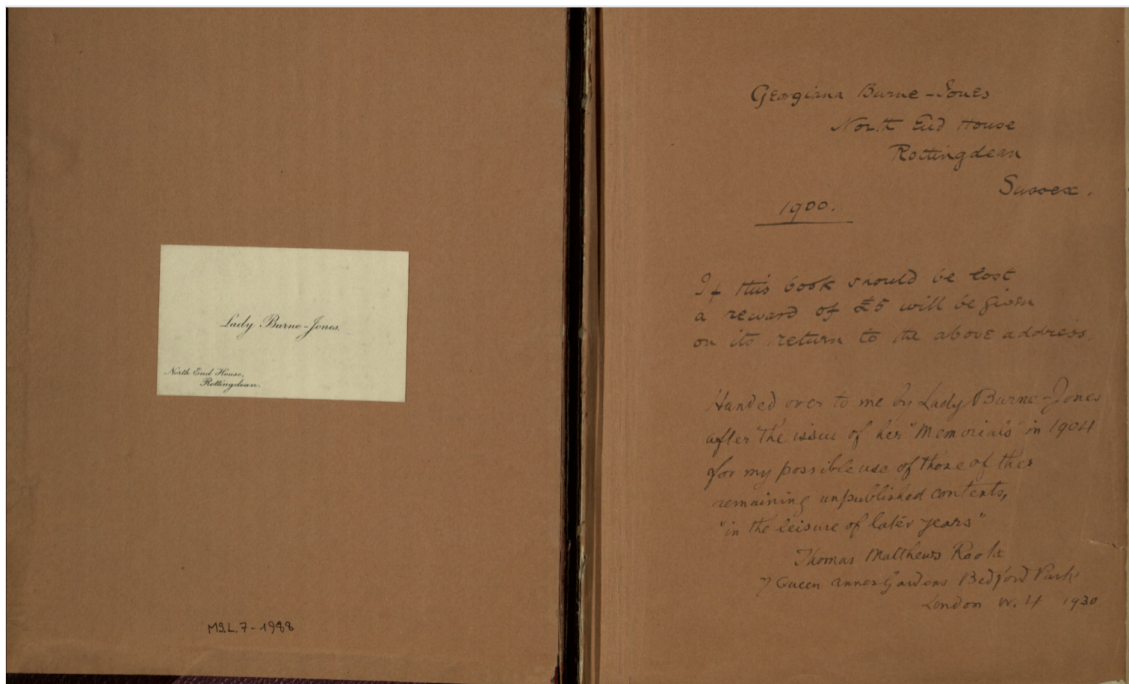 Lady Burne-Jones.
North End House,
Rottingdean.
MSL 7-1988
Georgiana Burne-Jones
North End House
Rottingdean
Sussex.
1900.
If this book should be lost
a reward of £5 will be given
on its return to the above address.
Handed over to me by Lady Burne-Jones
after the issue of her "Memorials" in 1904
for my possible use of those of the
remaining unpublished contents,
"in the leisure of later years"
Thomas Matthews Rooke
7 Queen Annes Gardens Bedford Park
London W. 4 1930